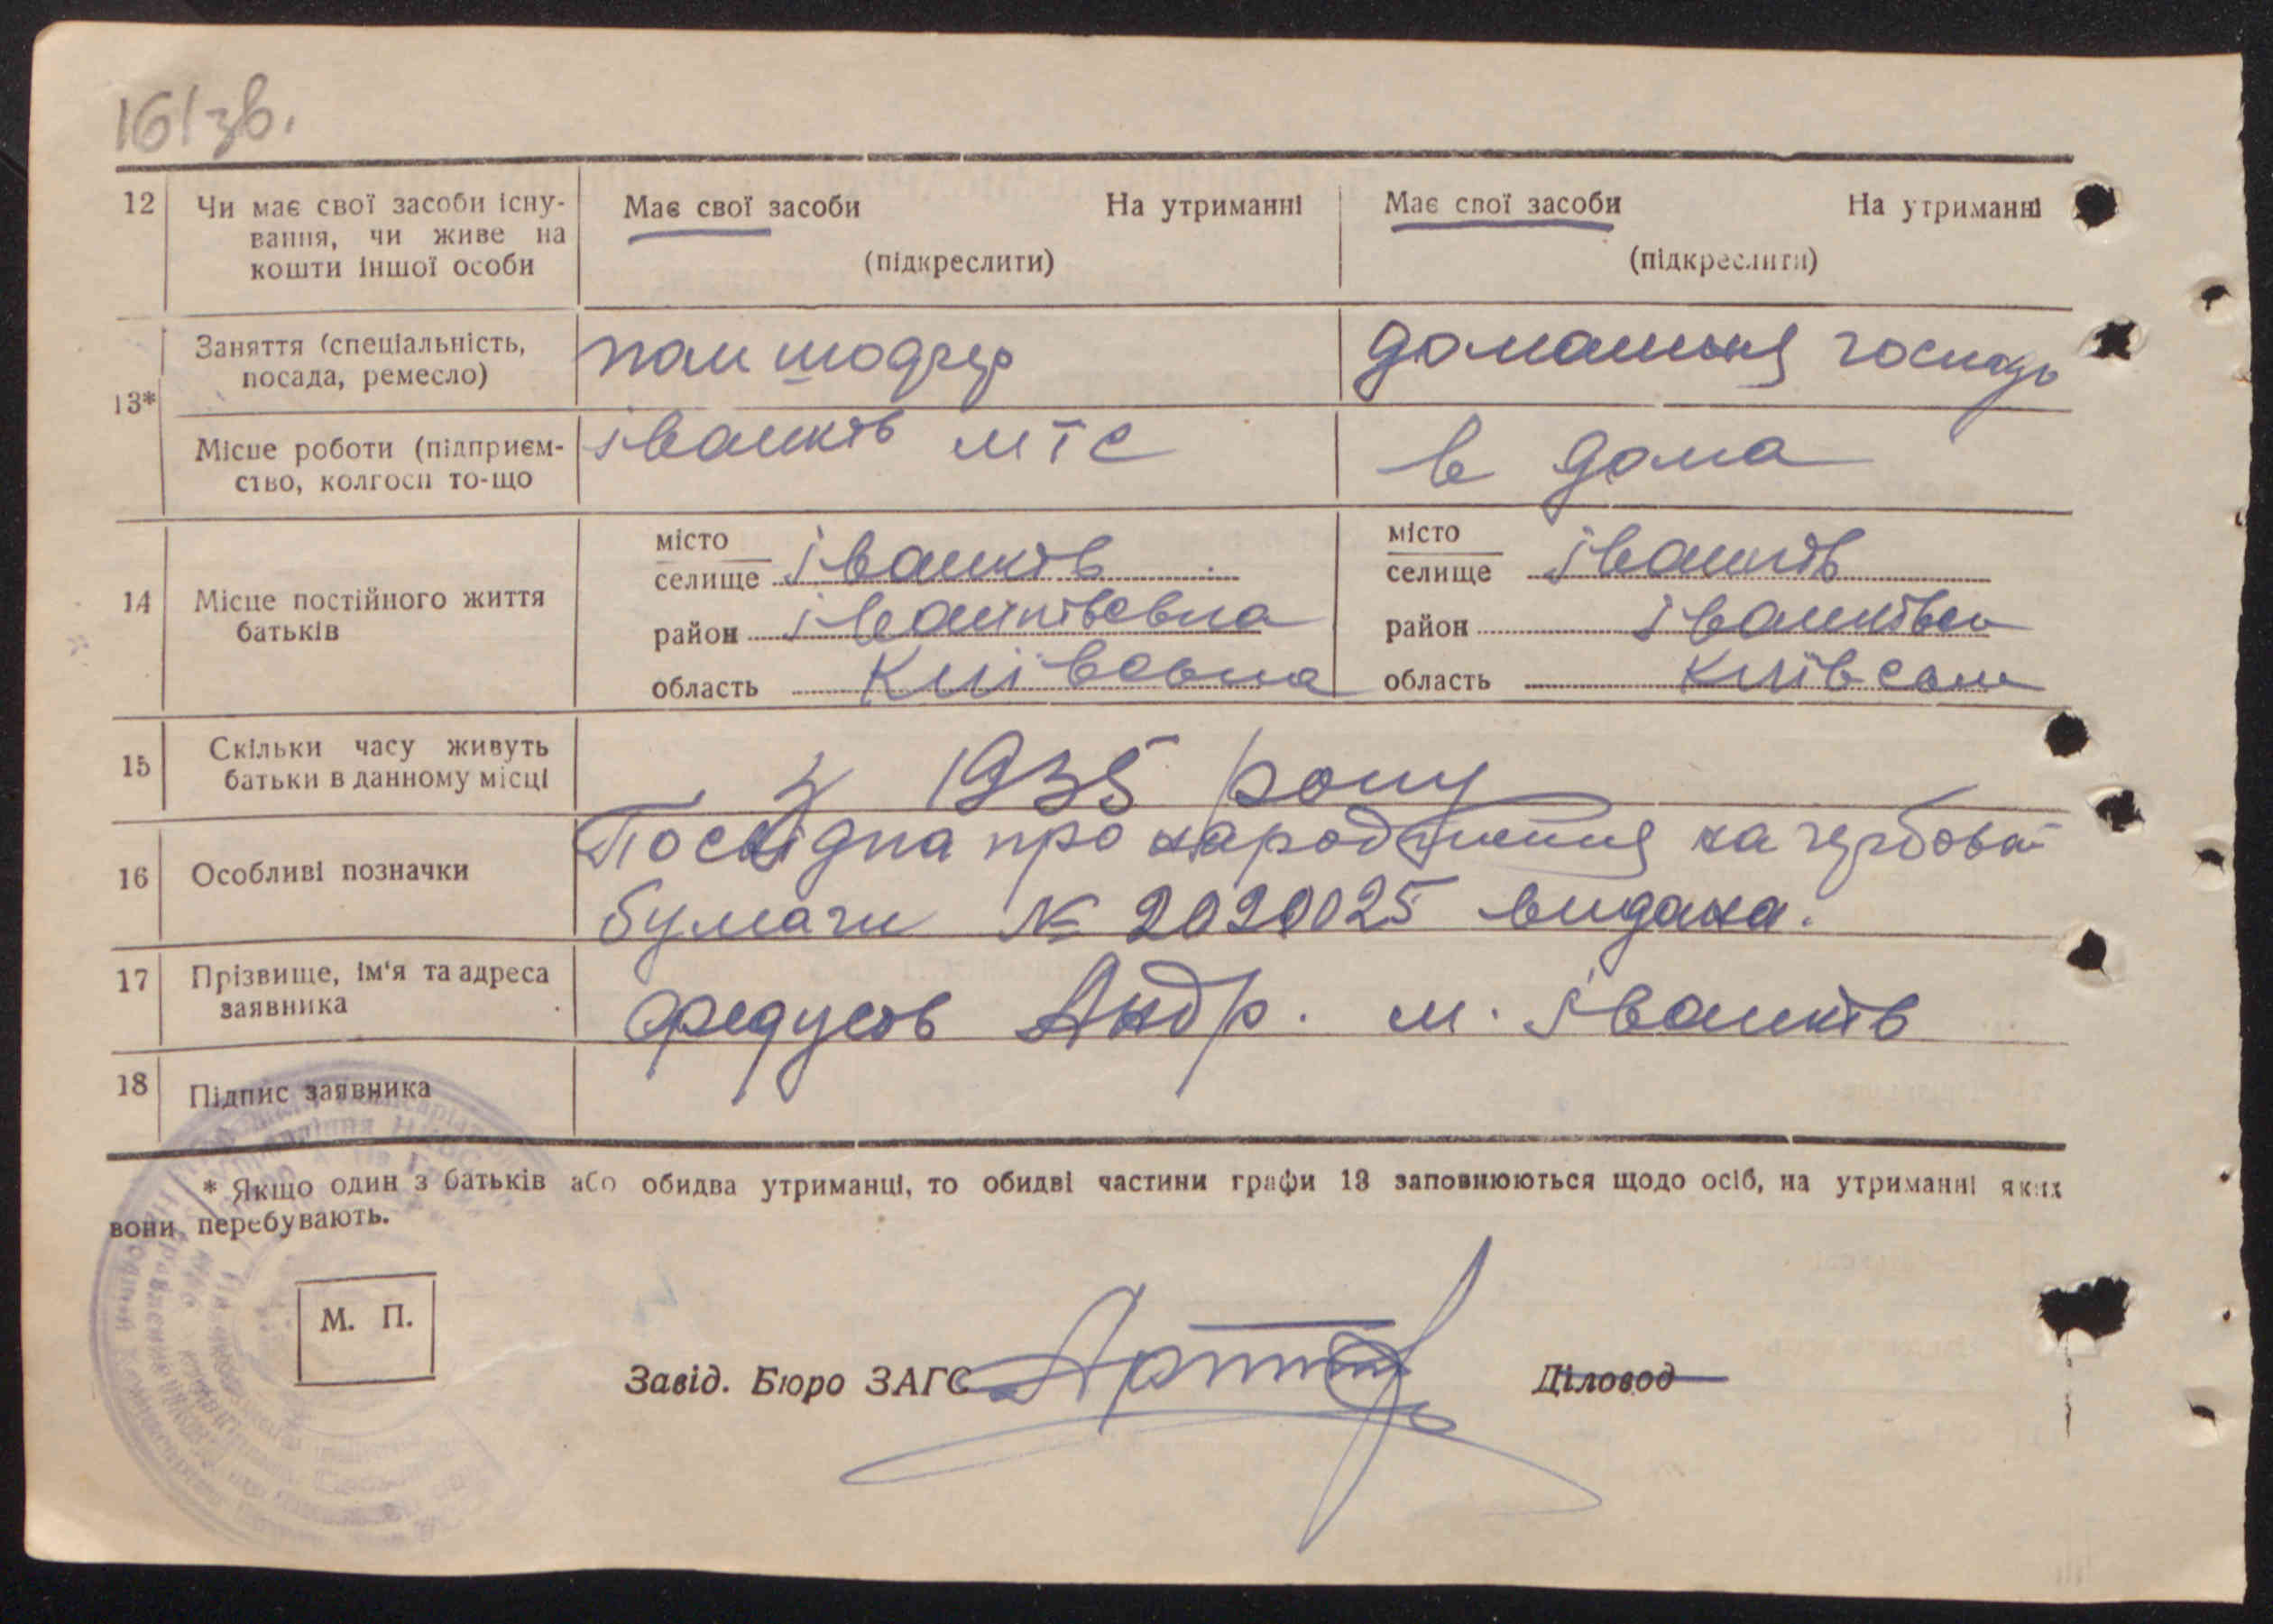 161 зв.
12 Чи має свої засоби існу- Має свої засоби На утриманні Має свої засоби На утриманні
вання, чи живе на
кошти іншої особи (підкреслити) (підкреслити)
13* Заняття (спеціальність, домашня господ
посада, ремесло)
Місце роботи (підприєм- іванків мтс в дома
ство, колгосп то-що
14 Місце постійного життя
батьків
місто
селище іванків
район іванківська
область Київська
місто
селище іванків
район іванківсь
область Київська
15 Скільки часу живуть
батьки в данному місці
з 1935 року
16 Особливі позначки
Посвідка про народження на гербовой
бумаги № 2020025 видана.
17 Прізвище, ім'я та адреса
заявника
Андр. м. іванків
18 Підпис заявника
* Якщо один з батьків або обидва утриманці, то обидві частини графи 13 заповнюються щодо осіб, на утриманні яких
вони перебувають.
М. П.
Завід. Бюро ЗАГС Діловод